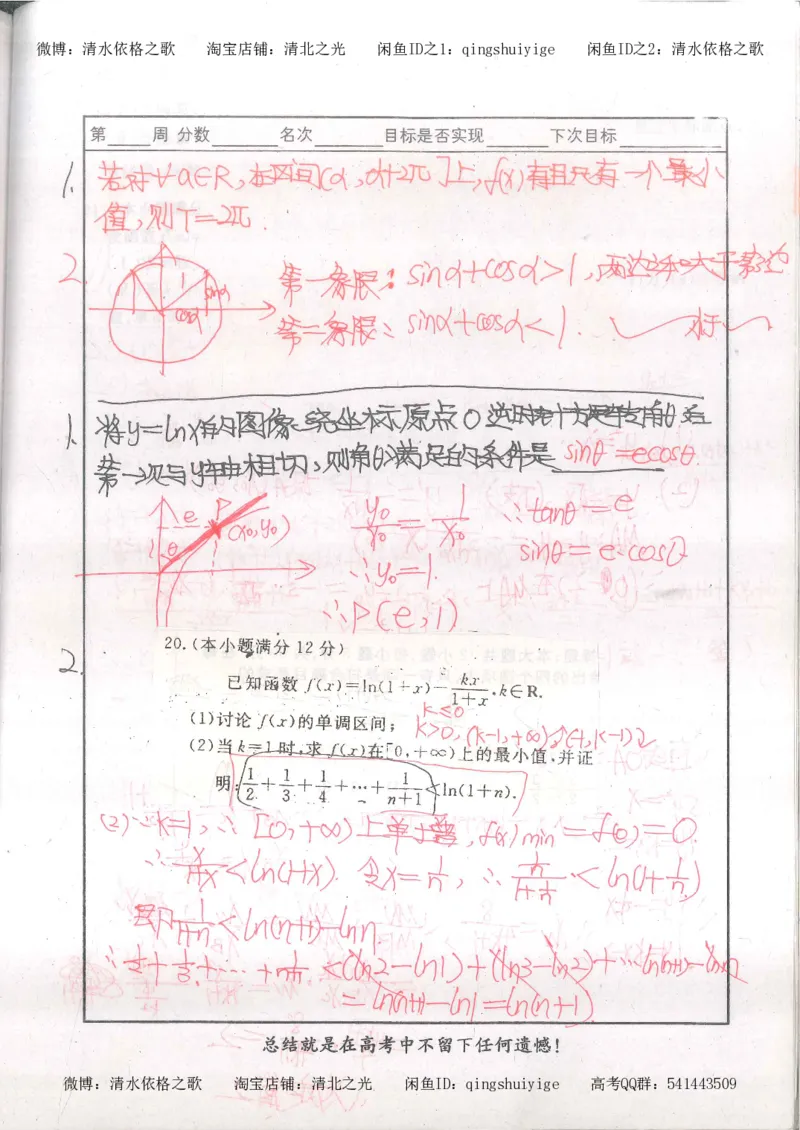 微博：清水依格之歌 淘宝店铺：清北之光 闲鱼ID之1：qingshuiyige 闲鱼ID之2：清水依格之歌
第____周 分数______ 名次______ 目标是否实现______ 下次目标______
1. 若对∀a∈R,在区间[a,a+2π]上,f(x)有且只有一个最小
值,则T=2π.
2.
1
sinα
cosα
第一象限：sinα+cosα>1,两边之和大于第三边
第二象限：sinα+cosα<1.
1. 将y=lnx的图像绕坐标原点O逆时针方向旋转角θ后
第一次与y轴相切,则角θ满足的条件是 sinθ=ecosθ.
e P
θ
(x₀,y₀)
y₀/x₀=1/x₀
∴y₀=1.
∴P(e,1)
∴tanθ=e
sinθ=e·cosθ
2.
20.(本小题满分12分)
已知函数 f(x)=ln(1+x)-kx/(1+x),k∈R.
(1)讨论 f(x)的单调区间;
k≤0
k>0,(k-1,+∞)↗(-1,k-1)↘
(2)当 k=1时,求 f(x)在[0,+∞)上的最小值,并证
明:1/2+1/3+1/4+…+1/(n+1)<ln(1+n).
(2)∵k=1,∴[0,+∞)上单增,f(x)min=f(0)=0
∴x/(1+x)<ln(1+x). 令x=1/n,∴(1/n)/(1+1/n)<ln(1+1/n)
即1/(1+n)<ln(n+1)-lnn
∴1/2+1/3+…+1/(n+1)<(ln2-ln1)+(ln3-ln2)+…ln(n+1)-lnn
=ln(n+1)-ln1=ln(n+1)
总结就是在高考中不留下任何遗憾！
微博：清水依格之歌 淘宝店铺：清北之光 闲鱼ID：qingshuiyige 高考QQ群：541443509